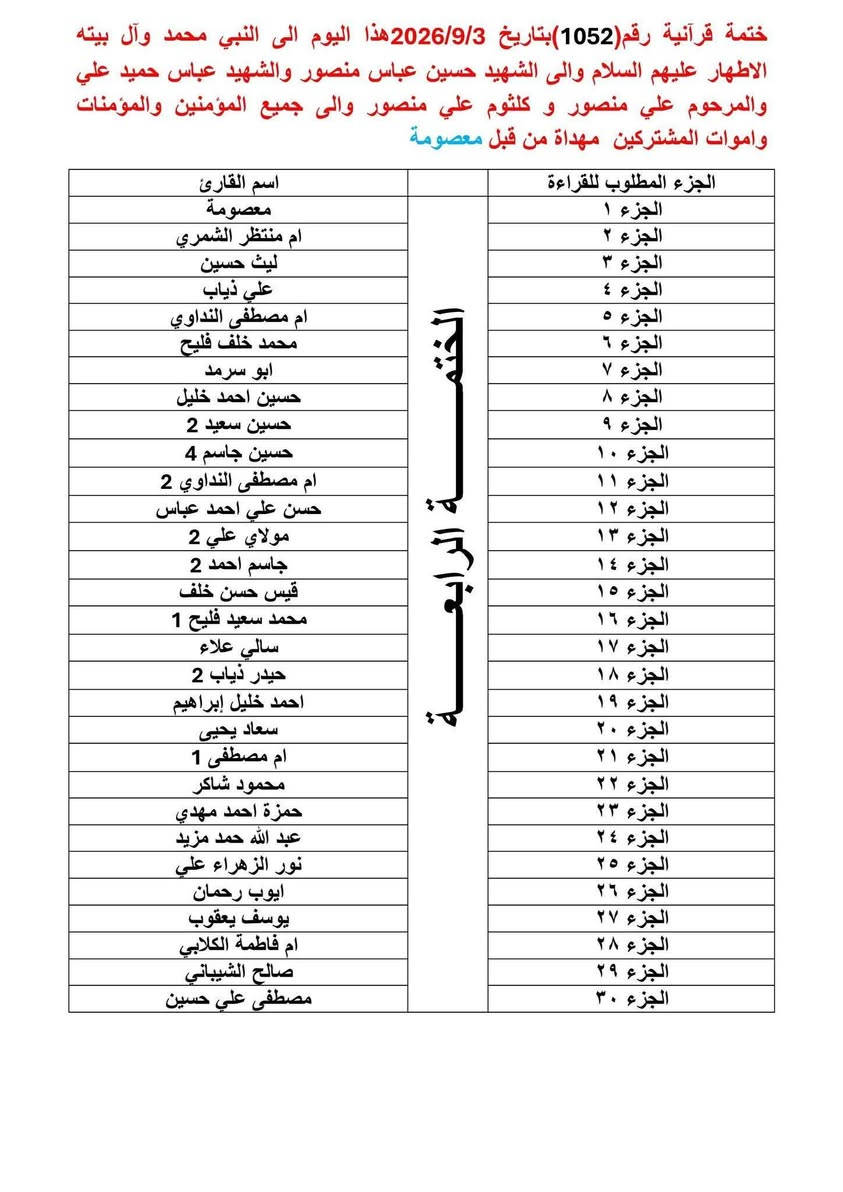 ختمة قرآنية رقم(1052)بتاريخ 2026/9/3هذا اليوم الى النبي محمد وآل بيته
الاطهار عليهم السلام والى الشهيد حسين عباس منصور والشهيد عباس حميد علي
والمرحوم علي منصور و كلثوم علي منصور والى جميع المؤمنين والمؤمنات
واموات المشتركين مهداة من قبل معصومة
الجزء المطلوب للقراءة اسم القارئ
الختمة الرابعة
الجزء ١ معصومة
الجزء ٢ ام منتظر الشمري
الجزء ٣ ليث حسين
الجزء ٤ علي ذياب
الجزء ٥ ام مصطفى النداوي
الجزء ٦ محمد خلف فليح
الجزء ٧ ابو سرمد
الجزء ٨ حسين احمد خليل
الجزء ٩ حسين سعيد 2
الجزء ١٠ حسين جاسم 4
الجزء ١١ ام مصطفى النداوي 2
الجزء ١٢ حسن علي احمد عباس
الجزء ١٣ مولاي علي 2
الجزء ١٤ جاسم احمد 2
الجزء ١٥ قيس حسن خلف
الجزء ١٦ محمد سعيد فليح 1
الجزء ١٧ سالي علاء
الجزء ١٨ حيدر ذياب 2
الجزء ١٩ احمد خليل إبراهيم
الجزء ٢٠ سعاد يحيى
الجزء ٢١ ام مصطفى 1
الجزء ٢٢ محمود شاكر
الجزء ٢٣ حمزة احمد مهدي
الجزء ٢٤ عبد الله حمد مزيد
الجزء ٢٥ نور الزهراء علي
الجزء ٢٦ ايوب رحمان
الجزء ٢٧ يوسف يعقوب
الجزء ٢٨ ام فاطمة الكلابي
الجزء ٢٩ صالح الشيباني
الجزء ٣٠ مصطفى علي حسين